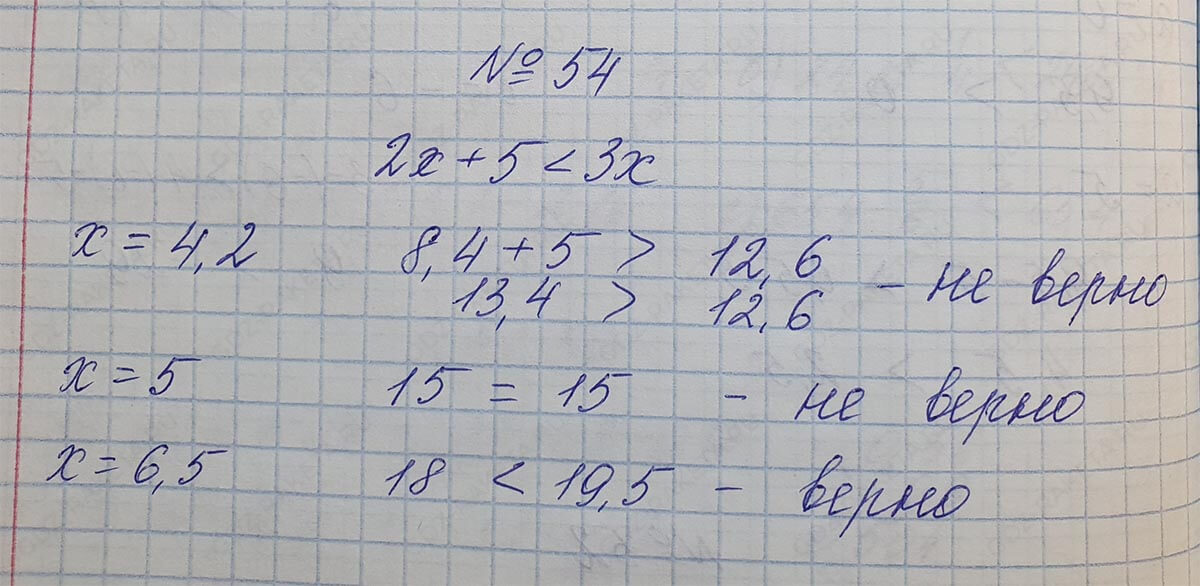 № 54
2x + 5 < 3x
x = 4,2 8,4 + 5 > 12,6
13,4 > 12,6 - не верно
x = 5 15 = 15 - не верно
x = 6,5 18 < 19,5 - верно